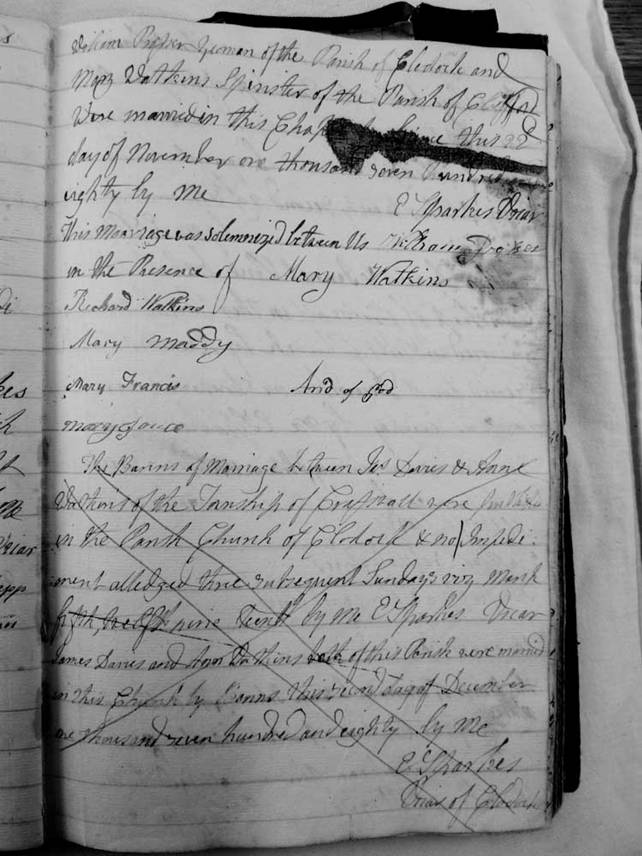 William Prosser Yeoman of the Parish of Clodock and
Mary Watkins Spinster of the Parish of Clifford
Were married in this by Licence this 22d
day of November one thousand seven Hundred
eighty by me
E Sparkes Vicar
This Marriage was solemnized between Us William Prosser
in the Presence of Mary Watkins
Richard Watkins
Mary Maddy
Mary Francis And of
Mary
The Banns of Marriage between Jas Davies & Anne
Watkins of the Township of Craswall were
in the Parish Church of Clodock & no Impedi
ment alledged three subsequent Sundays viz March
fifth, twelfth nine teenth by me E Sparkes Vicar
James Davies and Ann Watkins both of this Parish were married
in this Church by Banns this second day of December
one thousand seven hundred and eighty by me
E Sparkes
Vicar of Clodock